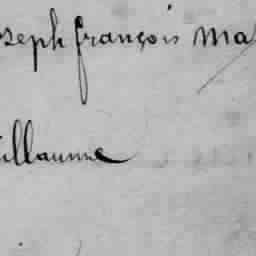 oseph françois Ma
illaume